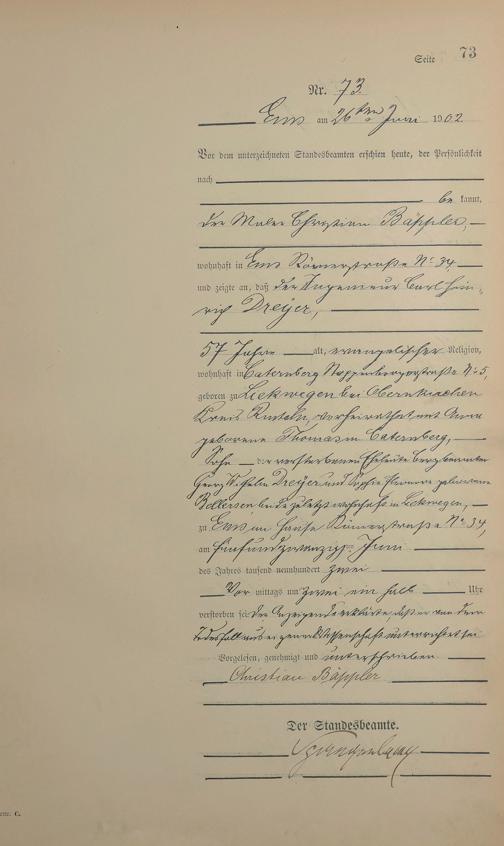 Seite 73
Nr. 73.
Ems am 26ten Juni 1902
Vor dem unterzeichneten Standesbeamten erschien heute, der Persönlichkeit
nach
be kannt,
der Maler Christian Bäppler,
wohnhaft in Ems Römerstraße No 34
und zeigte an, daß der Ingenieur Carl Hein-
rich Dreyer,
57 Jahre alt, evangelischer Religion,
wohnhaft in Caternberg Stoppenbergerstraße No 5,
geboren zu Liekwegen bei Obernkirchen
Kreis Rinteln, verheirathet mit Anna
geborene Thomas in Caternberg,
Sohn der verstorbenen Eheleute
Georg Wilhelm Dreyer und Sophie Eleonore geborene
beide zuletzt wohnhaft in Liekwegen,
zu Ems im Hause Römerstraße No 34,
am fünfundzwanzigsten Juni
des Jahres tausend neunhundert zwei
Vor mittags um zwei ein halb Uhr
verstorben sei. Der Anzeigende erklärte, daß er von dem
Todesfall aus eigener Wissenschaft unterrichtet sei
Vorgelesen, genehmigt und unterschrieben
Christian Bäppler
Der Standesbeamte.
C.